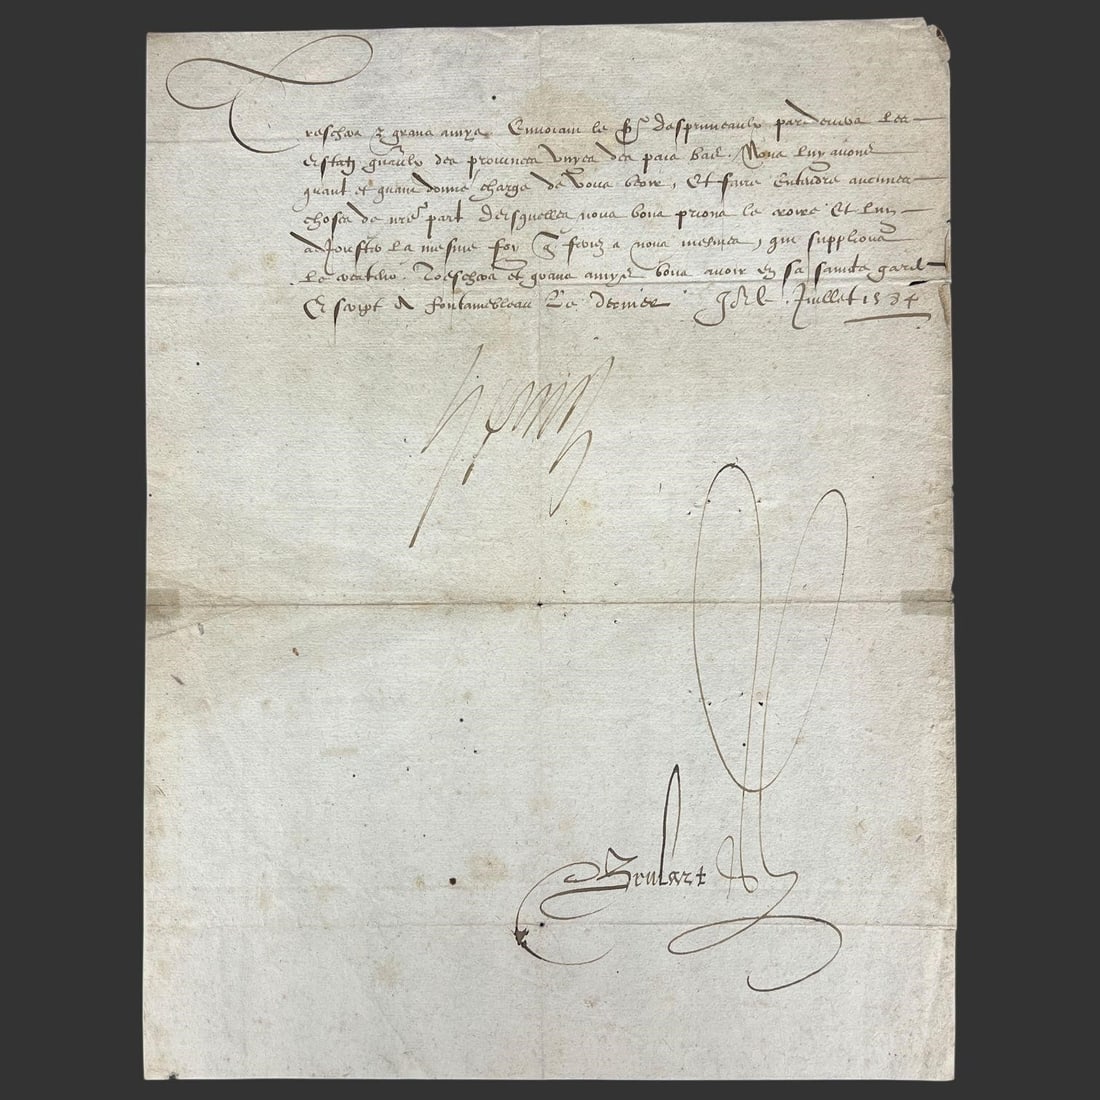 Treschers & grans amys Envoiant le Sr despruneaulx pardevers les
estatz gnaulx des provinces unyes des pais bas. Nous luy avons
quant et quant donné charge de vous veoir, Et faire entendre aucunes
choses de nre part desquelles nous vous prions le croire Et luy
adjouster la mesme foy q feriez a nous mesmes, qui supplions
le createur Treschers et grans amys vous avoir en sa saincte garde
Escript A Fontainebleau Le dernier Jor de Juillet 1584
Henry
Brulart